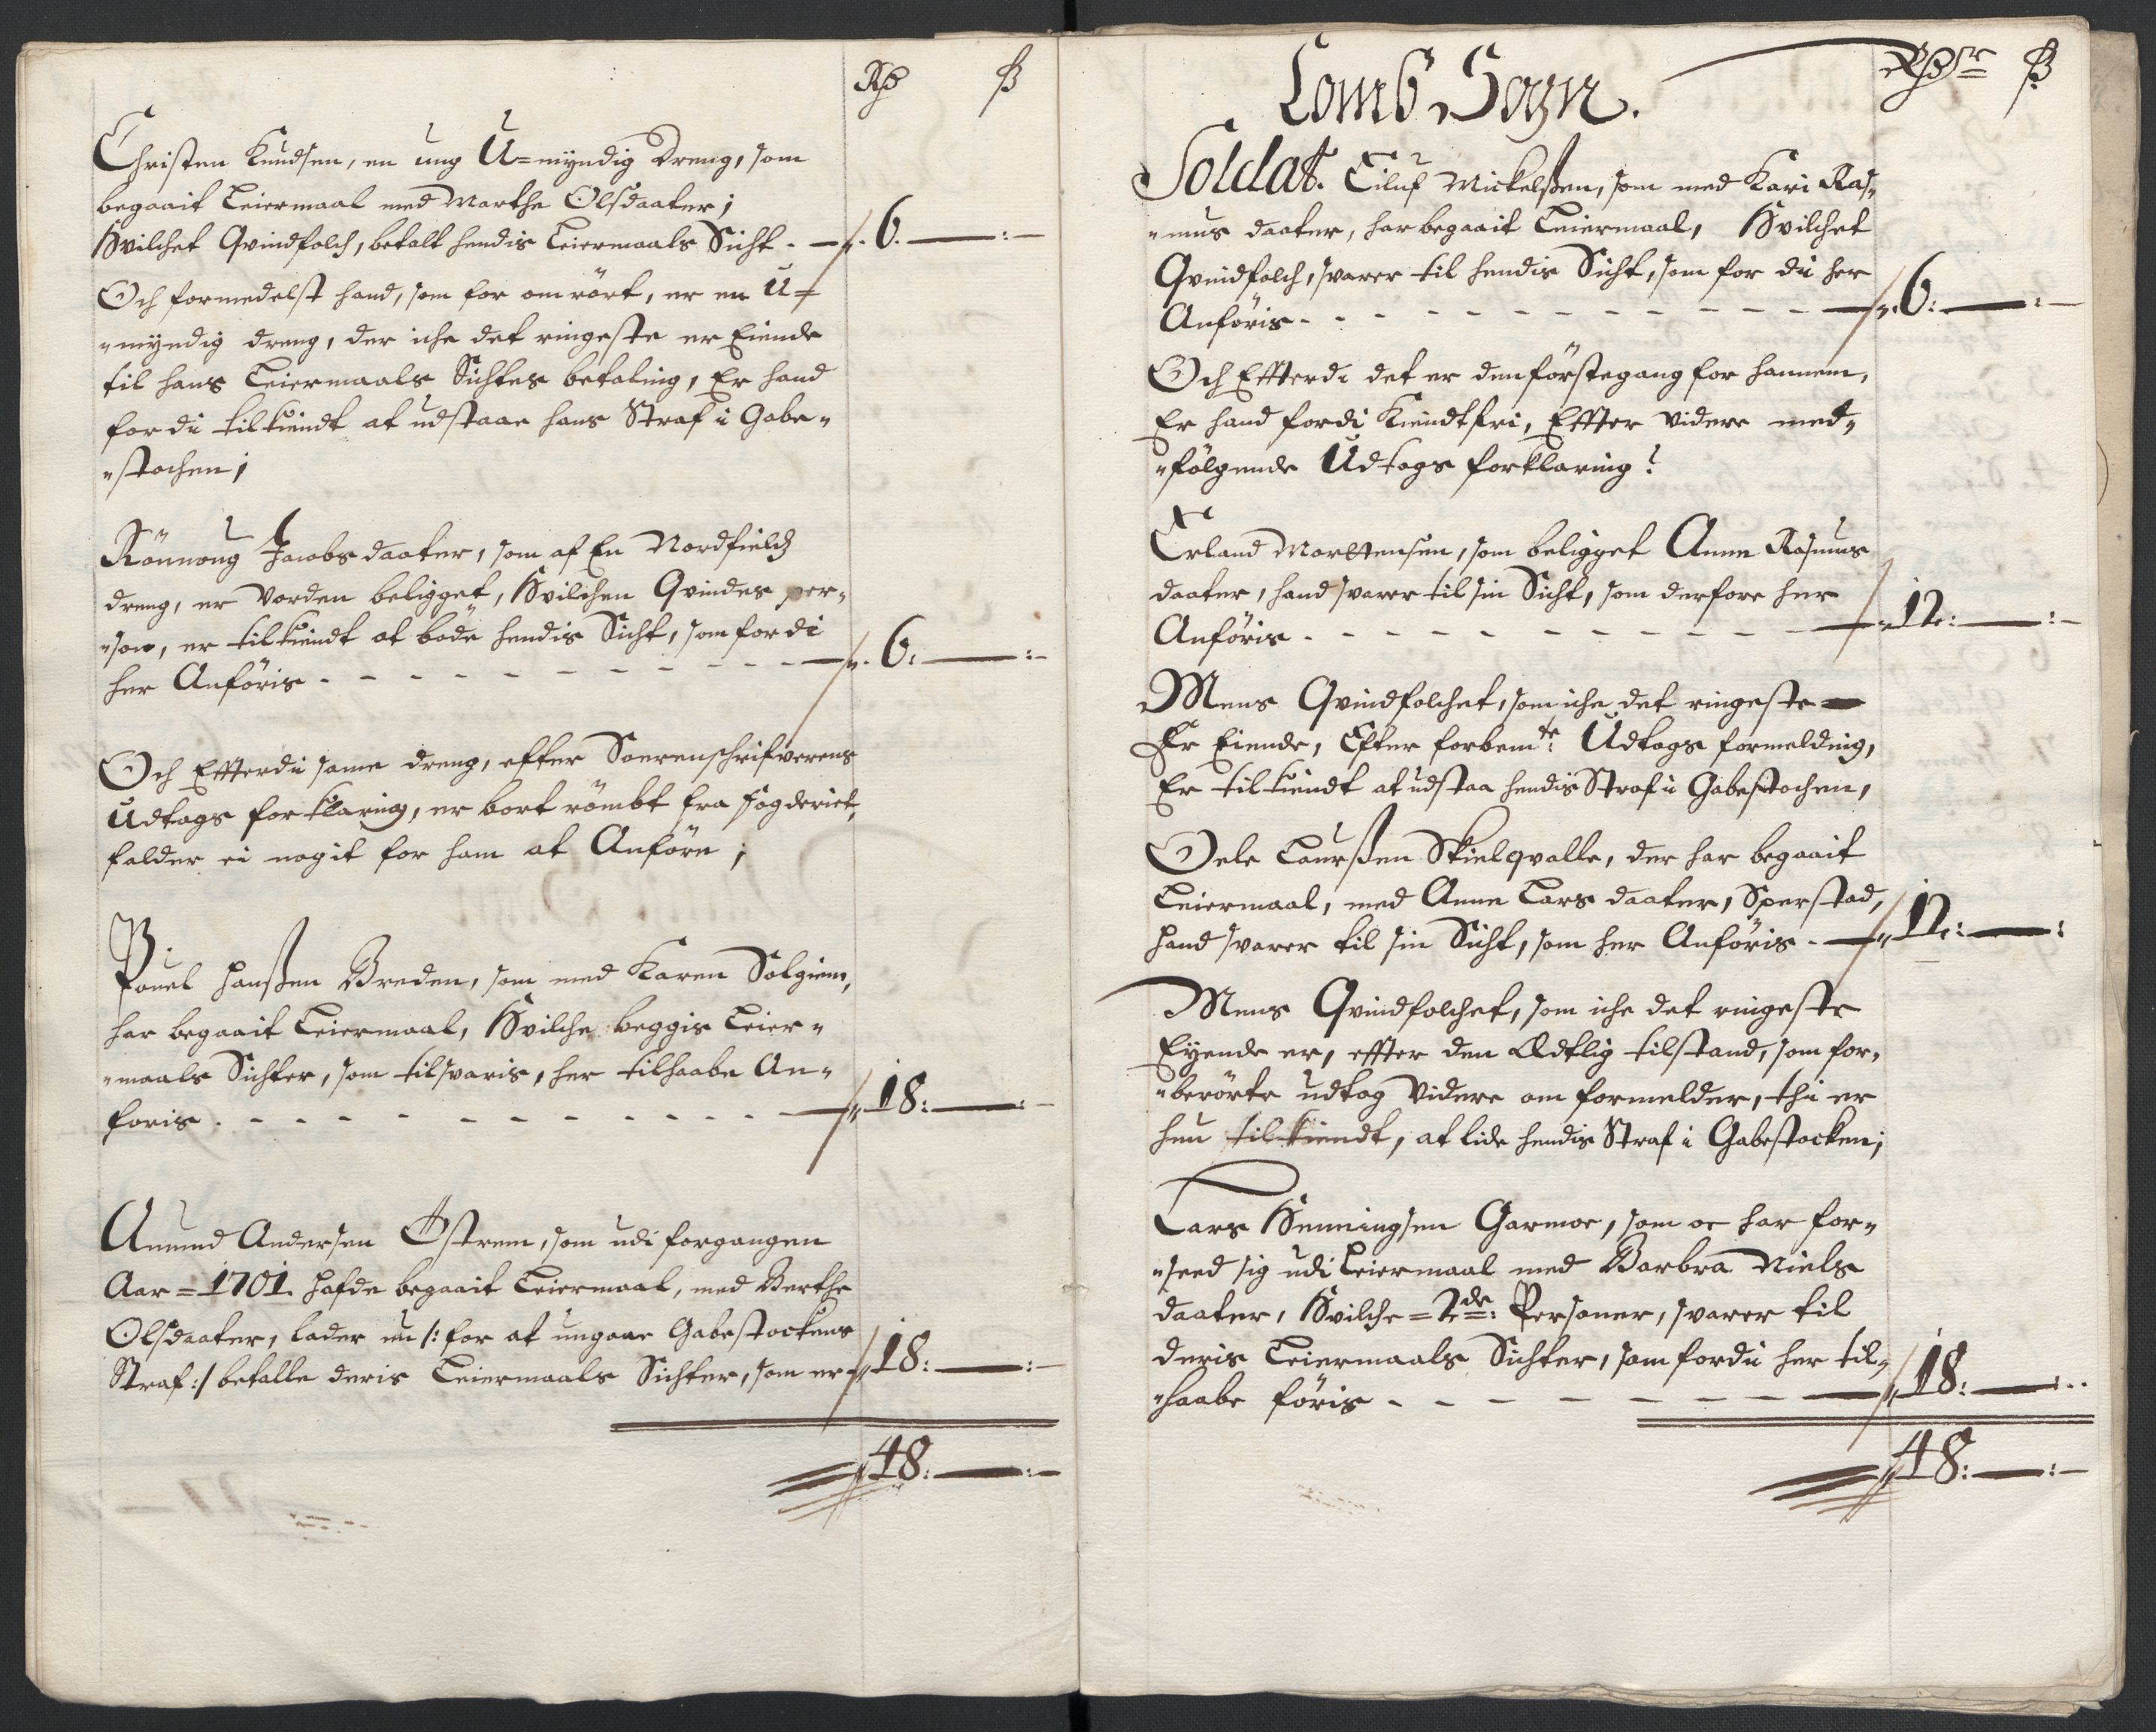 Rdr ß
Christen Knudsen, en ung U=myndig Dreng, som
begaait Leiermaal med Marthe Olsdaater;
Hvilchet Qvindfolch, betalt hendis Leiermaals Sicht. — 6. — : —
Och formedelst hand, som for omrört, er en U=
"myndig dreng, der iche det ringeste er Eiende
til hans Leiermaals Sichtes betaling, Er hand
fordi tilkiendt at udstaae hans Straf i Gabe"
"stochen;
Rönnoug Jacobsdaater, som af En Nordfields
dreng, er vorden beligget, Hvilchen Qvindes per"
"son, er tilkiendt at böde hendis Sicht, som fordi
her Anföris - - - - - - - - - — 6: — : —
Och Effterdi same dreng, efter Sorenschrifverens
Udtogs forklaring, er bort römbt fra fogderiet,
falder ei nogit for ham at Anföre;
Pouel Hanßen Breden, som med Karen Solgiem,
har begaait Leiermaal, Hvilche beggis Leier"
"maals Sichter, som tilsvaris, her tilhaabe An"
föris . - - - - - - - - - — 18: — : —
Amund Andersen Östrem, som udi forgangen
Aar = 1701. hafde begaait Leiermaal, med Berthe
Olsdaater, lader nu /: for at ungaae Gabestockens
Straf :/ betalle deris Leiermaals Sichter, som er 18: — : —
48: — : —
Lomb Sogn.
Rdr ß
Soldat. Eiluf Mickelßen, som med Kari Ras"
"mus daater, har begaait Leiermaal, Hvilchet
Qvindfolch, svarer til hendis Sicht, som for di her
Anföris - - - - - - - - - — 6: — : —
Och Effterdi det er den förstegang for hannem,
Er hand fordi Kiendt fri, Effter videre med"
"fölgende Udtogs forklaring;
Erland Morttensen, som beligget Anne Rasmus
daater, hand svarer til sin Sicht, som derfore her
Anföris - - - - - - - - - — 12: — : —
Mens Qvindfolchet, som iche det ringeste —
Er Eiende, Efter forbemte: Udtogs formelding,
Er tilkiendt at udstaa hendis Straf i Gabestochen,
Oele Laurßen Skielqvalle, der har begaait
Leiermaal, med Anne Lars daater, Sperstad,
hand svarer til sin Sicht, som her Anföris . — 12: — :
Mens Qvindfolchet, som iche det ringeste
Eyende er, effter den Ædtlig tilstand, som for"
"berörte udtog videre om formelder, thi er
hun tilkiendt, at lide hendis Straf i Gabestocken;
Lars Henningsen Garmoe, som oc har for"
"seed sig udi Leiermaal med Barbra Niels
daater, Hvilche = 2de: Personer, svarer til
deris Leiermaals Sichter, som fordi her til"
"haabe föris - - - - - - — 18: — : —
48: — : —